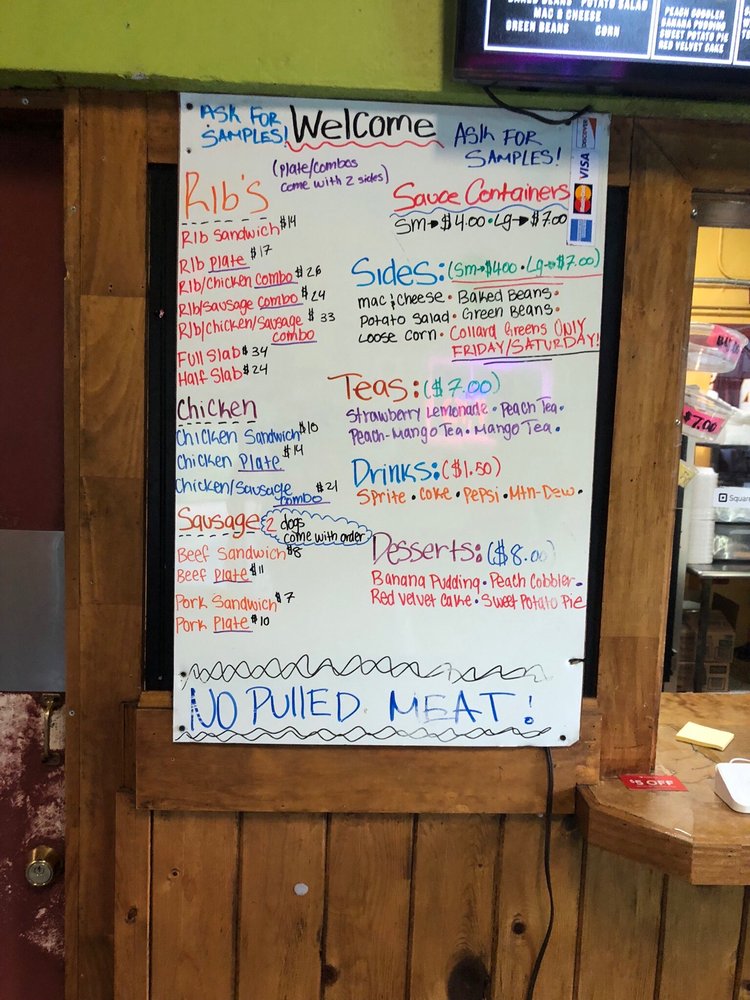 POTATO SALAD
MAC & CHEESE
GREEN BEANS CORN
PEACH COBBLER
BANANA PUDDING
SWEET POTATO PIE
RED VELVET CAKE
ASK FOR
SAMPLES!
Welcome
ASK FOR
SAMPLES!
(Plate/combos
come with 2 sides)
DISCOVER
VISA
MasterCard
RIb's
RIb Sandwich $14
RIb Plate $17
RIb/Chicken combo $26
RIb/Sausage combo $24
RIb/Chicken/Sausage $33
combo
Full Slab $34
Half Slab $24
Chicken
Chicken Sandwich $10
Chicken Plate $14
Chicken/Sausage $21
combo
Sausage
2 dogs
come with order
Beef Sandwich $8
Beef Plate $11
Pork Sandwich $7
Pork Plate $10
Sauce Containers
Sm→$4.00 • Lg→$7.00
Sides: (Sm→$4.00 • Lg→$7.00)
mac & cheese • Baked Beans •
Potato Salad • Green Beans •
Loose corn • Collard Greens ONLY
FRIDAY/SATURDAY!
Teas: ($7.00)
Strawberry Lemonade • Peach Tea •
Peach-Mango Tea • Mango Tea •
Drinks: ($1.50)
Sprite • Coke • Pepsi • Mtn-Dew •
Desserts: ($8.00)
Banana Pudding • Peach Cobbler •
Red Velvet Cake • Sweet Potato Pie
NO PULLED MEAT!
$7.00
Square
$5 OFF